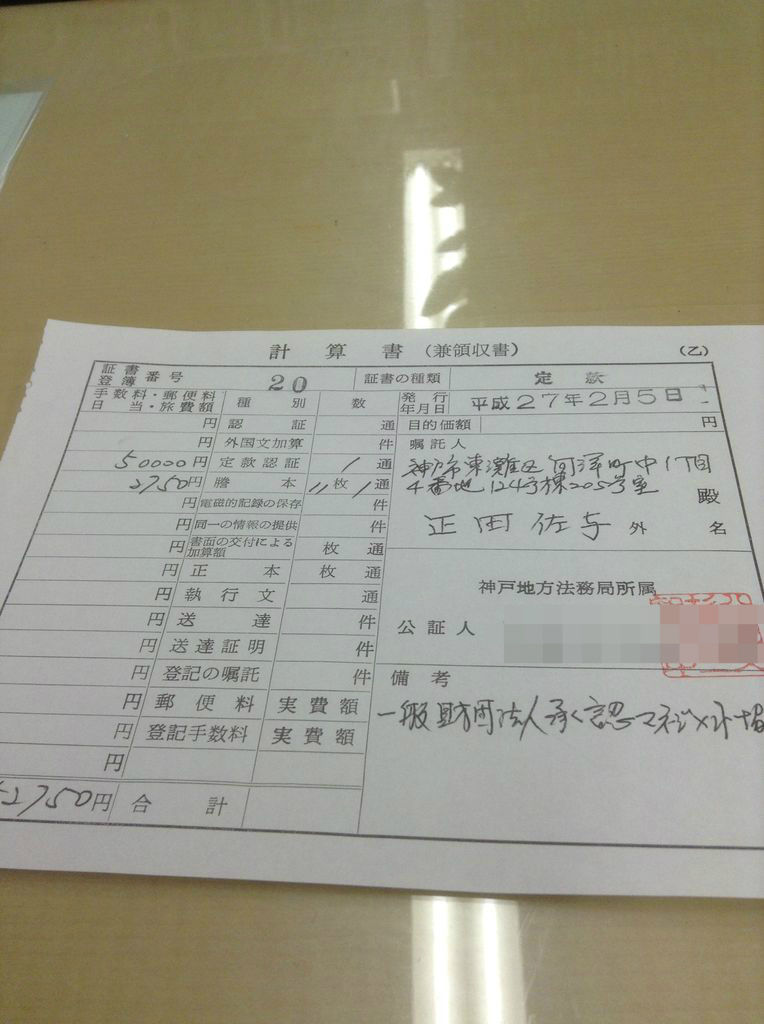 計算書（兼領収書）
（乙）
証書
登簿 番号
20
証書の種類
定款
手数料・郵便料
日当・旅費額
種別
数
発行
年月日
平成27年2月5日
円 認証 通
目的価額 円
円 外国文加算 件
嘱託人
50000円 定款認証 1通
神戸市東灘区向洋町中1丁目
2750円 謄本 11枚1通
4番地124号棟205号室
殿
円 電磁的記録の保存 件
円 同一の情報の提供 件
正田佐与 外 名
円 書面の交付による
加算額 枚 通
円 正本 枚 通
神戸地方法務局所属
円 執行文 通
公証人
円 送達 件
円 送達証明 件
円 登記の嘱託 件
備考
円 郵便料 実費額
一般財団法人承認マネジメント協
円 登記手数料 実費額
円
52750円 合計